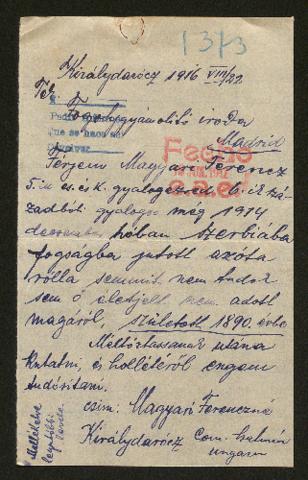 1373
Királydarócz 1916 VIII/22
Tek.
Fogolygyámolító iroda
Madrid
Fecho
Férjem Magyari Ferencz
5. ik cs. és k. gyalogezred, 6. ik szá
zadbóli gyalogos még 1914
december hóban Szerbiába
fogságba jutott azóta
rólla semmit nem tudok
sem ő életjelt nem adott
magáról, született 1890. évbe
Méltóztassanak utána
kutatni, és hollétéről engem
tudósitani.
czim: Magyari Ferenczné
Királydarócz
ungarn
Mellékelve
legutóbbi
levele